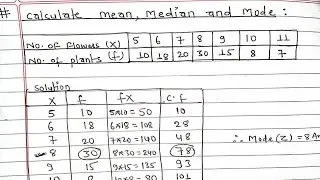 # Calculate mean, Median and Mode :
No. of flowers (x) 5 6 7 8 9 10 11
No. of plants (f) 10 18 20 30 15 8 7
Solution
x f fx c.f
5 10 5×10 = 50 10
6 18 6×18 = 108 28
7 20 7×20 = 140 48
8 30 8×30 = 240 78
∴ Mode (z) = 8
9 15 9×15 = 135 93
8 101